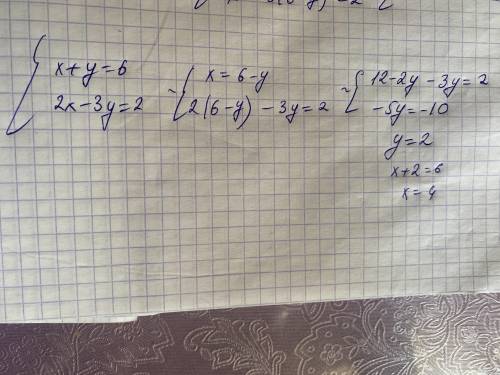 x+y=6
2x-3y=2
~ x=6-y
2(6-y)-3y=2
~ 12-2y-3y=2
-5y=-10
y=2
x+2=6
x=4